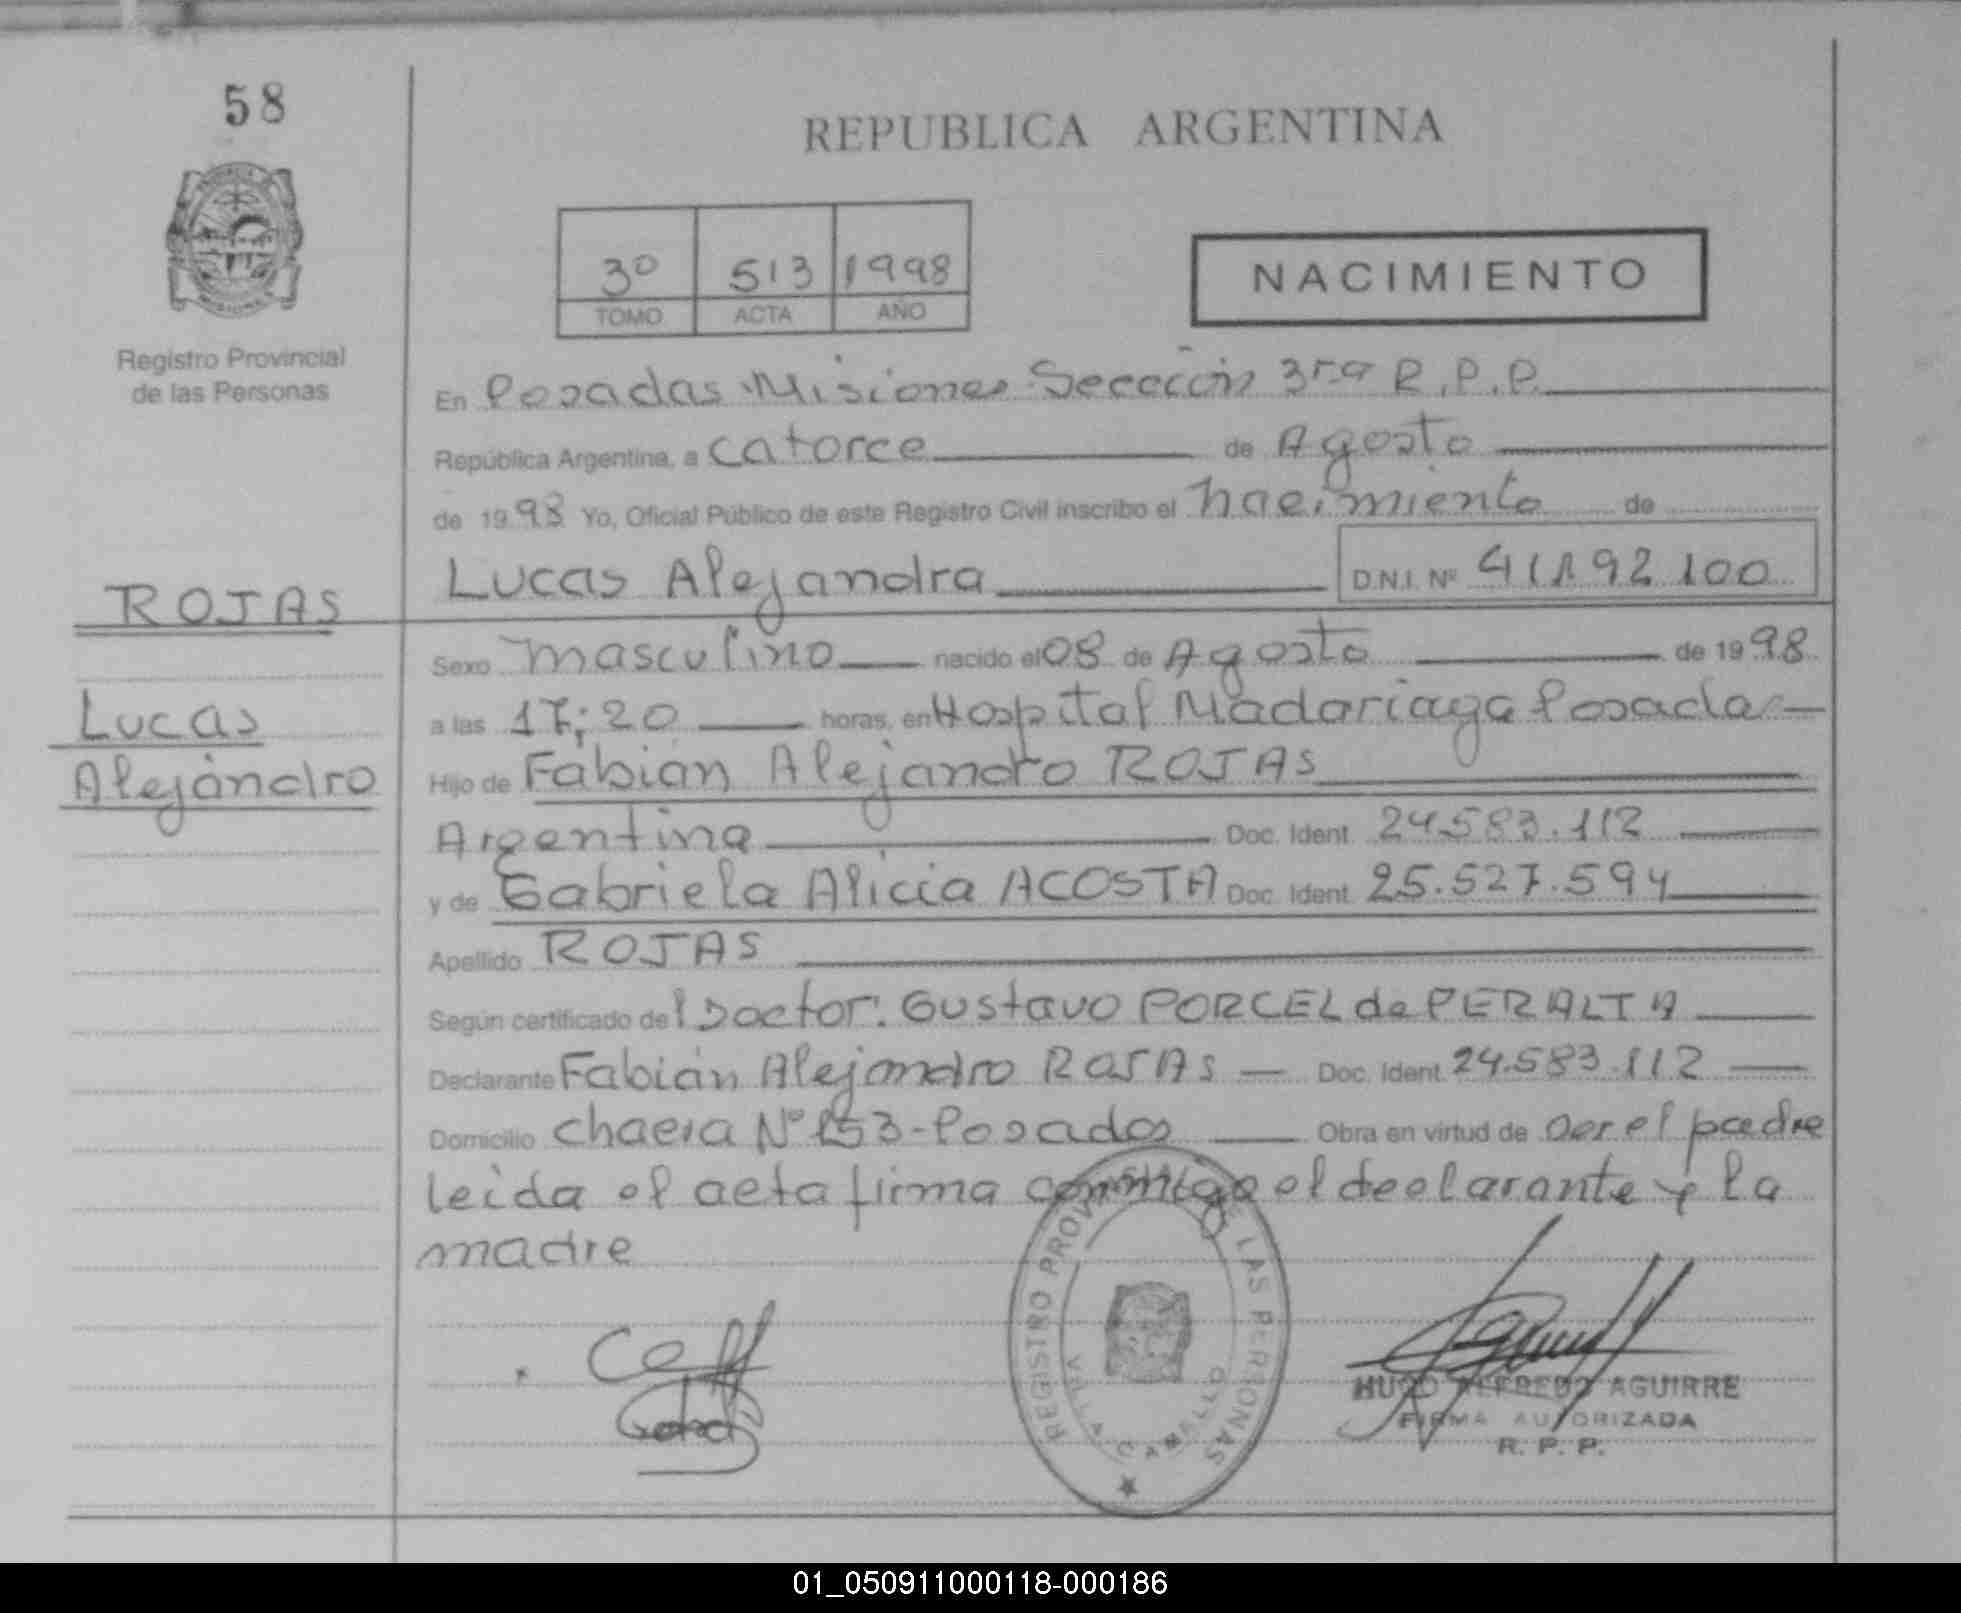 58
REPUBLICA ARGENTINA
3º 513 1998
TOMO ACTA AÑO
NACIMIENTO
Registro Provincial
de las Personas
En Posadas Misiones Sección 3ra R.P.P.
República Argentina, a catorce de Agosto
de 1998 Yo, Oficial Público de este Registro Civil inscribo el nacimiento de
Lucas Alejandra D.N.I. Nº 41.192.100
ROJAS
Lucas
Alejandro
Sexo masculino nacido el 08 de Agosto de 1998
a las 17;20 horas, en Hospital Madariaga Posadas
Hijo de Fabián Alejandro ROJAS
Argentina Doc. Ident. 24.583.112
y de Gabriela Alicia ACOSTA Doc. Ident. 25.527.594
Apellido ROJAS
Según certificado del Doctor: Gustavo PORCEL de PERALTA
Declarante Fabián Alejandro ROJAS Doc. Ident. 24.583.112
Domicilio chacra Nº 153-Posadas Obra en virtud de ser el padre
leida el acta firma conmigo el declarante y la
madre
REGISTRO PROVINCIAL DE LAS PERSONAS
VILLA CABELLO
HUGO ALFREDO AGUIRRE
FIRMA AUTORIZADA
R. P. P.
01_050911000118-000186